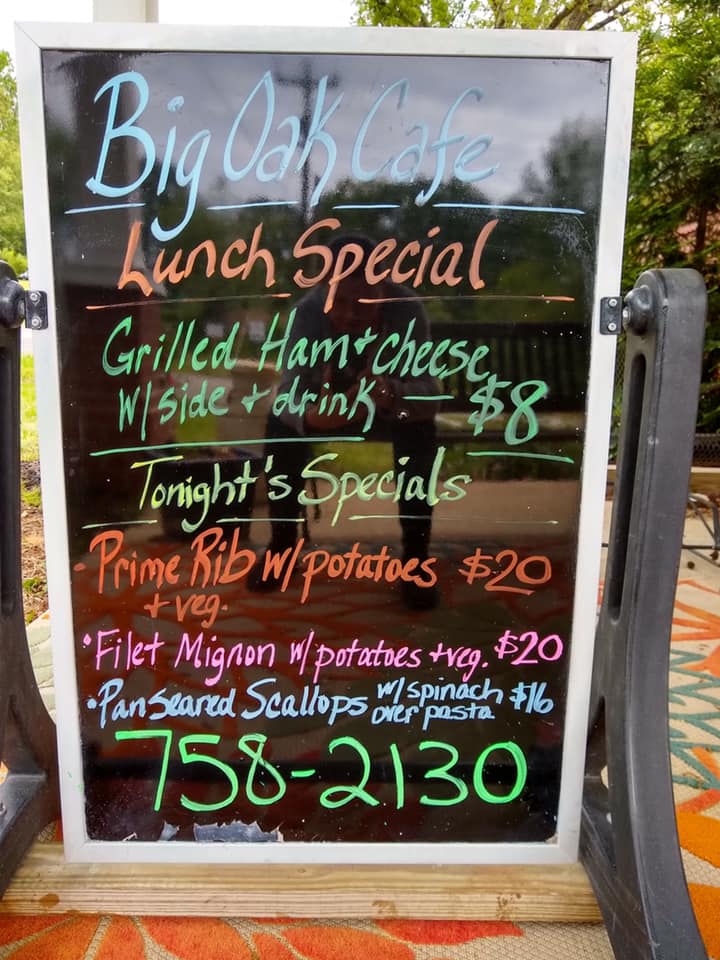 Big Oak Cafe
Lunch Special
Grilled Ham + cheese
w/ side + drink — $8
Tonight's Specials
• Prime Rib w/ potatoes $20
+ veg.
• Filet Mignon w/ potatoes + veg. $20
• Pan Seared Scallops w/ spinach $16
over pasta
758-2130